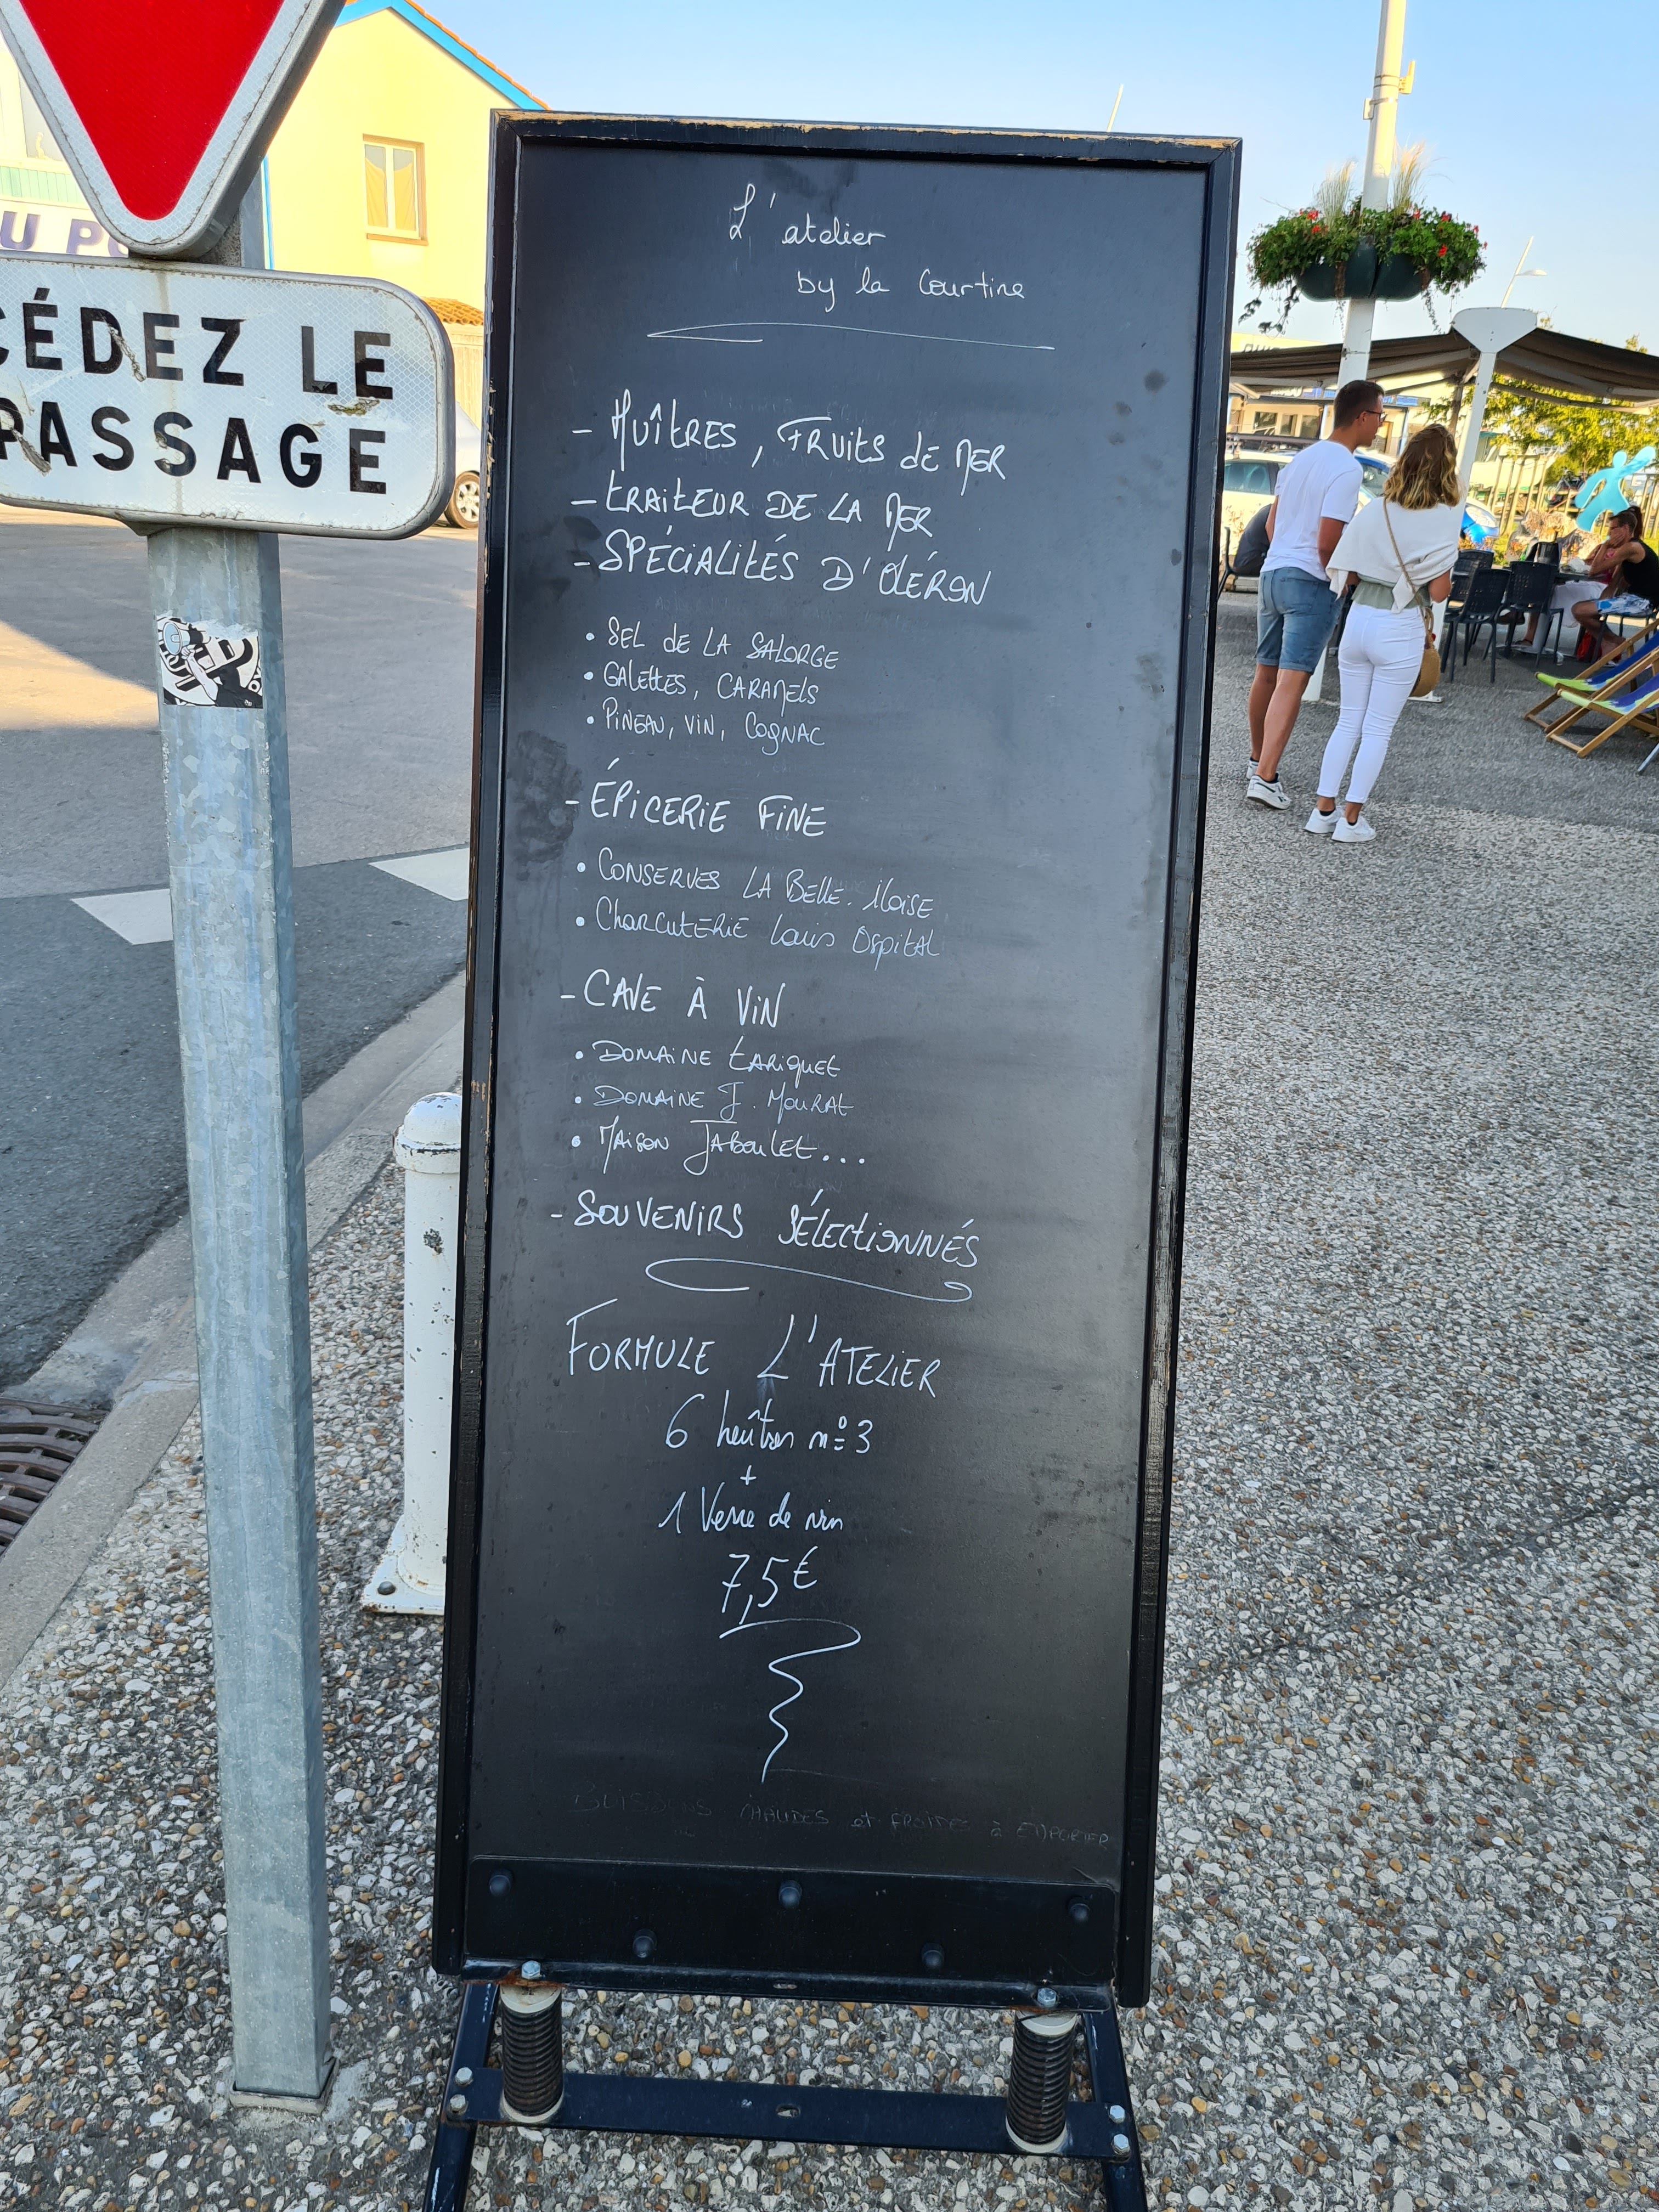 U PO
CÉDEZ LE
PASSAGE
L'atelier
by la Courtine
- HUÎTRES, FRUITS DE MER
- TRAITEUR DE LA MER
- SPÉCIALITÉS D'OLÉRON
• SEL DE LA SALORGE
• GALETTES, CARAMELS
• PINEAU, VIN, COGNAC
- ÉPICERIE FINE
• CONSERVES LA BELLE.ILOISE
• CHARCUTERIE LOUIS OSPITAL
- CAVE À VIN
• DOMAINE TARIQUET
• DOMAINE J. MOURAT
• MAISON JABOULET...
- SOUVENIRS SÉLECTIONNÉS
FORMULE L'ATELIER
6 huîtres n°3
+
1 Verre de vin
7,5€
BOISSONS CHAUDES et FROIDES à EMPORTER